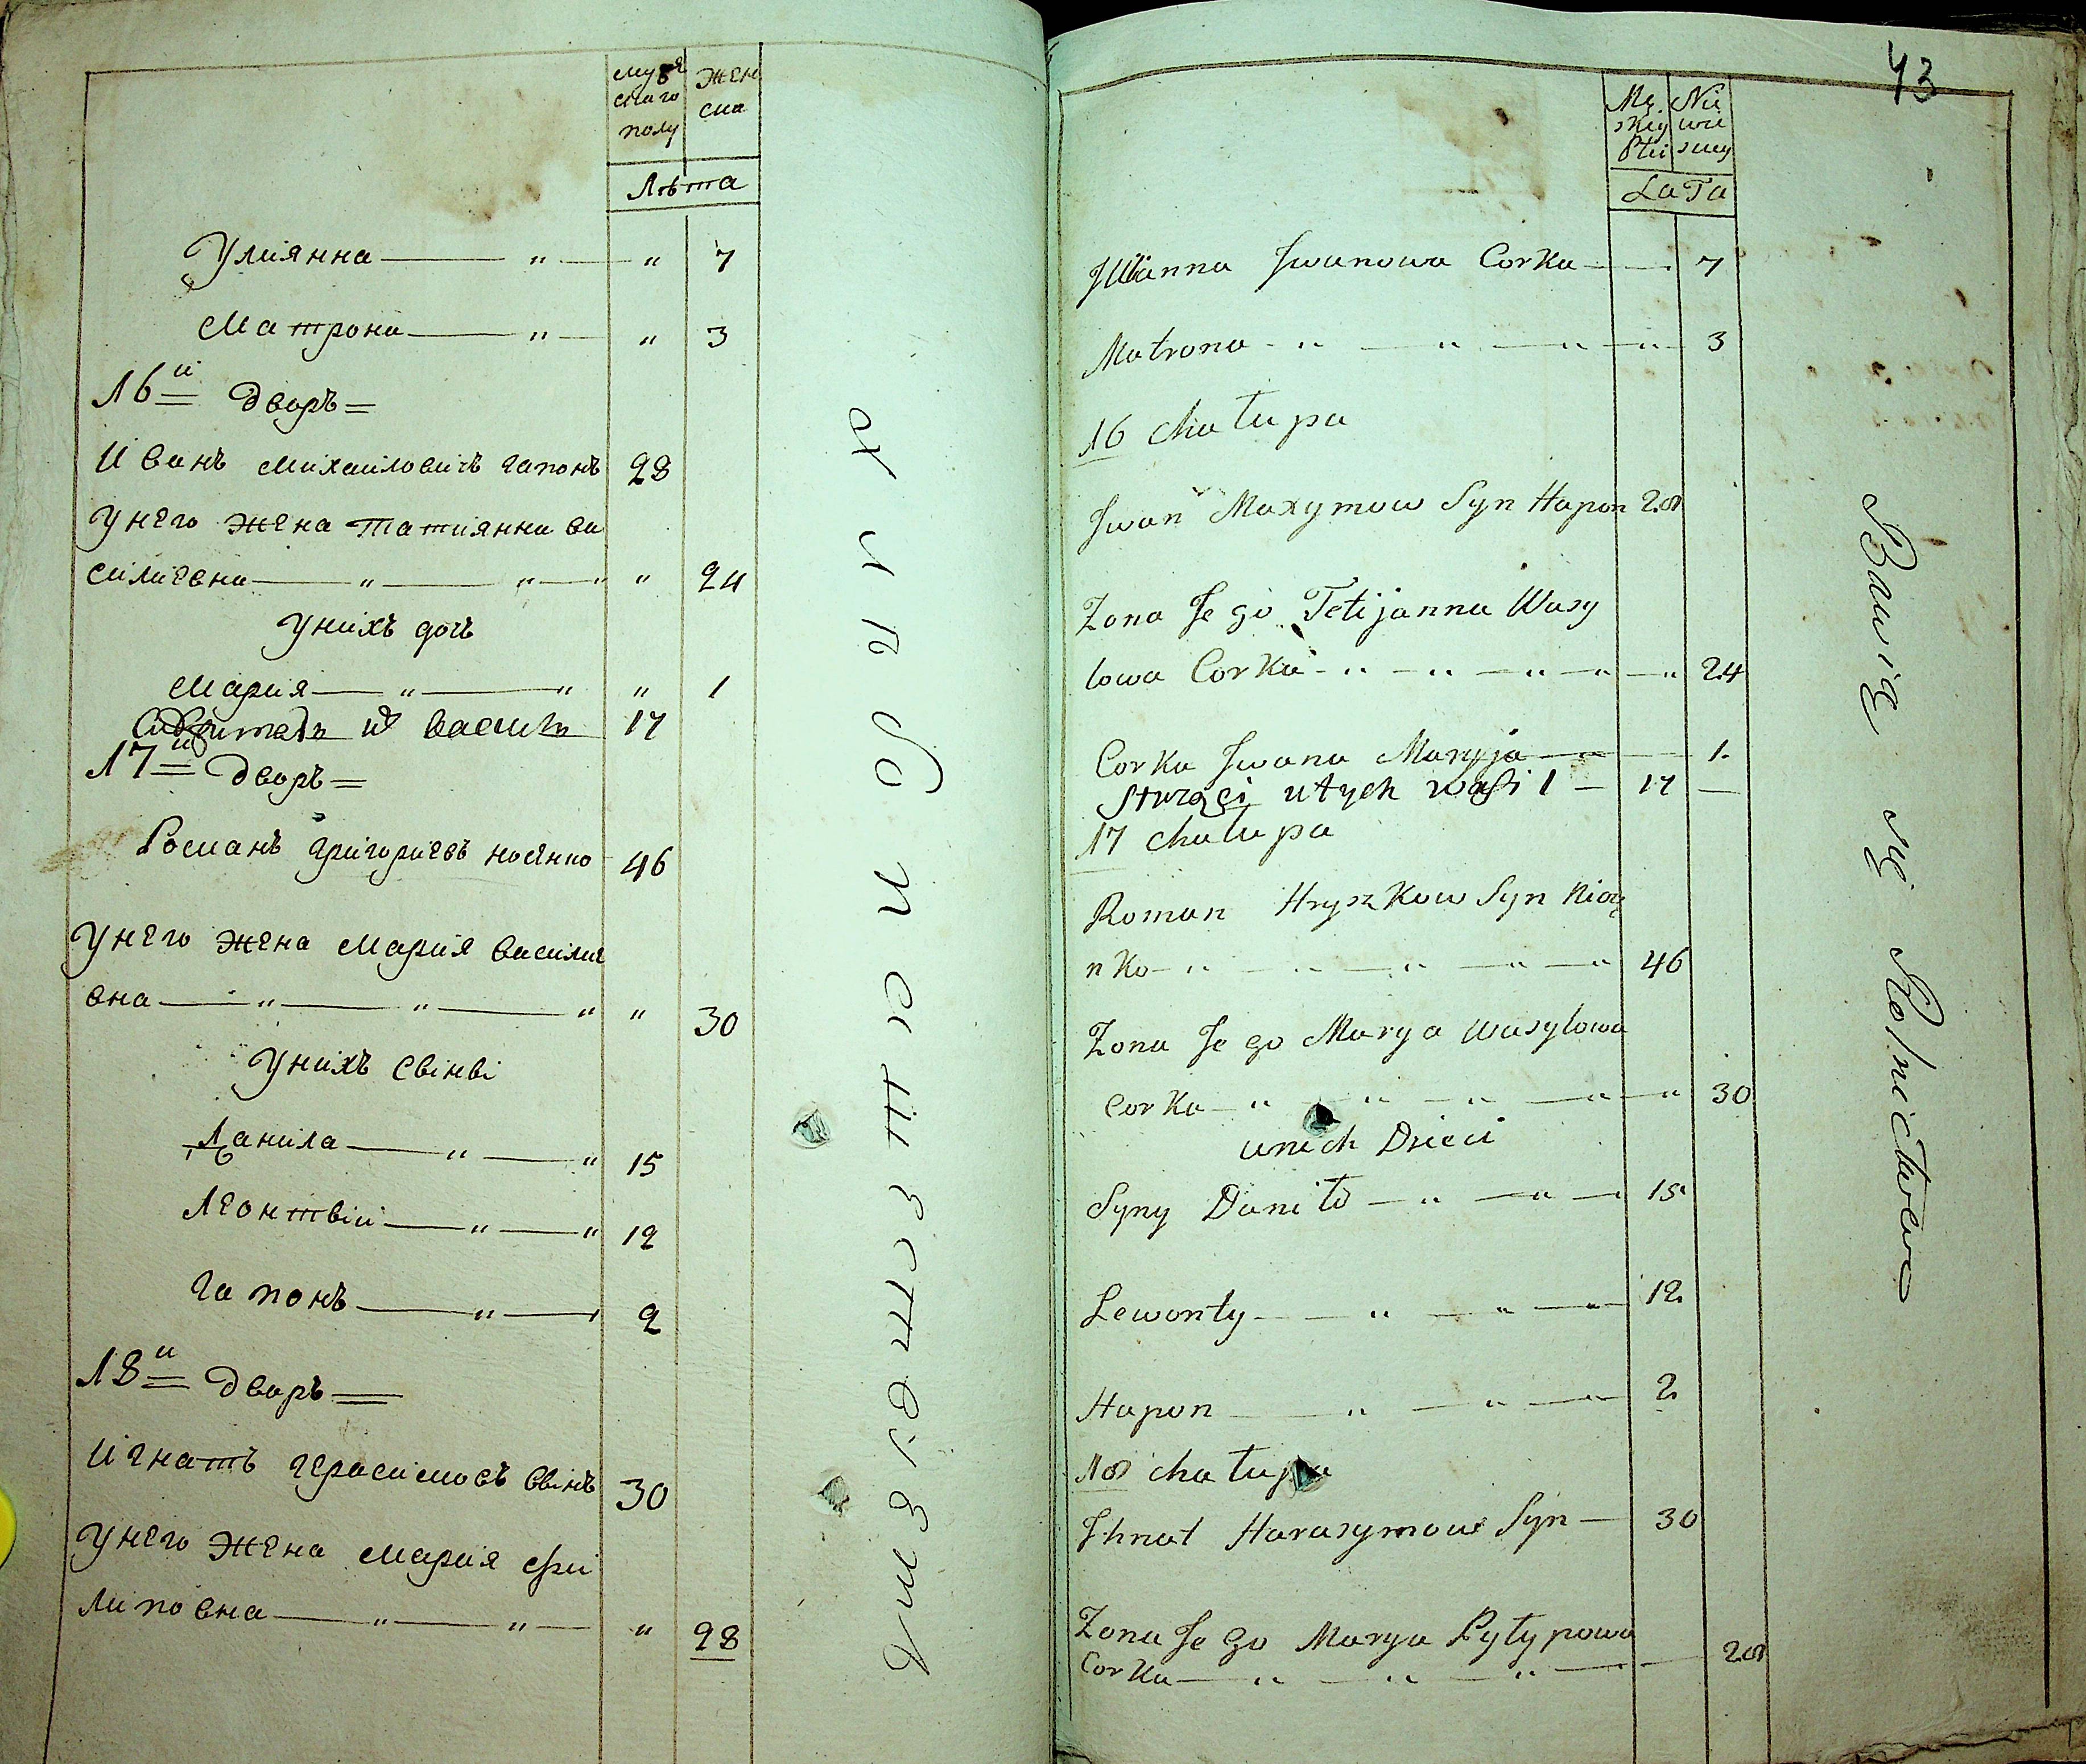 мужескаго полу
женска
Лѣта
Улиянна — " — " 7
Матрона — " — " 3
16й дворъ =
Иванъ Михаиловичъ гапонъ 28
У него жена татиянна ва
силиевна — " — " — " " 24
У нихъ дочь
Мария — " — " " 1
17
17й дворъ =
Романъ григориевъ носенко 46
У него жена Мария василие
вна — " — " — " " 30
У нихъ
Данила — " — " 15
Леонтвiи — " — " 12
гапонъ — " — 2
18й дворъ =
Игнатъ герасимовъ 30
У него жена Мария фи
липовна — " — " — " 28
43
Mę skiey Płci
Nie wie sciey
LaTa
Julianna Iwanowa Corka — 7
Matrona - " — " — " — " 3
16 chałupa
Iwan Maxymow Syn Hapon 28
Zona Jego Tetijanna Wasy
lowa Corka - " - " - " - " - " 24
Corka Iwana Maryja — 1.
utych wasi 1 — 17 —
17 chałupa
Roman Hryszkow Syn
nko - " - " - " - " - " 46
Zona Jego Marya Wasylowa
corka - " - " - " - " - " 30
unich Dzieci
Syny Daniło — " — " — 15
Lewonty — " — " — " — 12
Hapon — " — " — " — 2
18 chałupa
Ihnat Harasymow Syn — 30
Zona Jego Marya Pylypowa
Corka — " — " — " — 28
Bawią się Rolnictwem